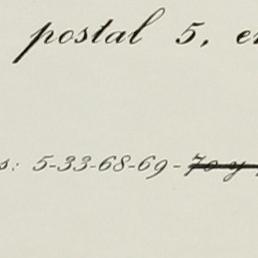 postal 5, e
s: 5-33-68-69-70 y